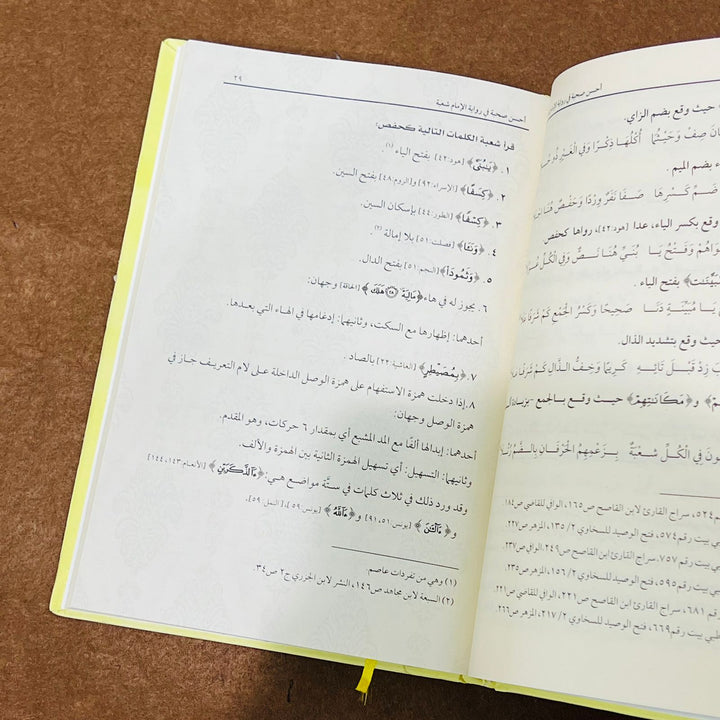 ٢٩
أحسن صحبة في رواية الإمام شعبة
قرأ شعبة الكلمات التالية كحفص:
١. ﴿يَٰبُنَيَّ﴾ [هود:٤٢] بفتح الياء (١)
٢. ﴿كِسَفًا﴾ [الإسراء:٩٢] و[الروم:٤٨] بفتح السين.
٣. ﴿كِسْفًا﴾ [الطور:٤٤] بإسكان السين.
٤. ﴿وَنَـَٔا﴾ [فصلت:٥١] بلا إمالة (٢)
٥. ﴿وَثَمُودَاْ﴾ [النجم:٥١] بفتح الدال.
٦. يجوز له في هاء ﴿مَالِيَهۡ ٢٨ هَلَكَ﴾ [الحاقة] وجهان:
أحدهما: إظهارها مع السكت، وثانيهما: إدغامها في الهاء التي بعدها.
٧. ﴿بِمُصَيۡطِرٍ﴾ [الغاشية:٢٢] بالصاد.
٨. إذا دخلت همزة الاستفهام على همزة الوصل الداخلة على لام التعريف جاز في
همزة الوصل وجهان:
أحدهما: إبدالها ألفًا مع المد المشبع أي بمقدار ٦ حركات، وهو المقدم.
وثانيهما: التسهيل: أي تسهيل الهمزة الثانية بين الهمزة والألف.
وقد ورد ذلك في ثلاث كلمات في ستَّة مواضع هي: ﴿ءَآلذَّكَرَيۡنِ﴾ [الأنعام:١٤٣، ١٤٤]
و﴿ءَآلۡـَٰٔنَ﴾ [يونس:٥١، ٩١] و﴿ءَآللَّهُ﴾ [يونس:٥٩]، [النمل:٥٩].
(١) وهي من تفردات عاصم.
(٢) السبعة لابن مجاهد ص١٤٦، النشر لابن الجزري ج٢ ص٣٤.
أحسن صحبة في رواية الإمام
حيث وقع بضم الزاي.
صِفْ وَحَيْثُمَا أُكْلُهَا ذِكْرًا وَفِي الْغَيْرِ
بضم الميم.
ضَمِّ كَسْرِهَا صَفَا نَفَرٌ وِرْدًا وَحَفْصٌ هُنَا
وقع بكسر الياء، عدا [هود:٤٢]، رواها كحفص
وَفَتْحُ يَا بُنَيِّ هُنَا نَصٌّ وَفِي الْكُلِّ
بفتح الياء.
يَا مُبَيِّنَةٍ دَنَا صَحِيحًا وَكَسْرُ الْجَمْعِ كَمْ شَرَفًا
حيث وقع بتشديد الذال.
و﴿مَكَانَتِهِمْ﴾ حيث وقع بالجمع
فِي الْكُلِّ شُعْبَةٌ بِزَعْمِهِمُ الْحَرْفَانِ بِالضَّمِّ
سراج القارئ لابن القاصح ص١٦٥، الوافي للقاضي ص١٨٤
بيت رقم ٥٧٤، فتح الوصيد للسخاوي ٢/ ١٣٥، المزهر ص٢٢٧
بيت رقم ٧٥٧، سراج القارئ ابن القاصح ص٢٤٩، الوافي ص٢٣٧.
بيت رقم ٥٩٥، فتح الوصيد للسخاوي ٢/ ١٥٦، المزهر ص٢٣٥
٦٨١، سراج القارئ ابن القاصح ص٢٢١، الوافي للقاضي ص٢٢١
بيت رقم ٦٦٩، فتح الوصيد للسخاوي ٢/ ٢١٧، المزهر ص٢٦٦